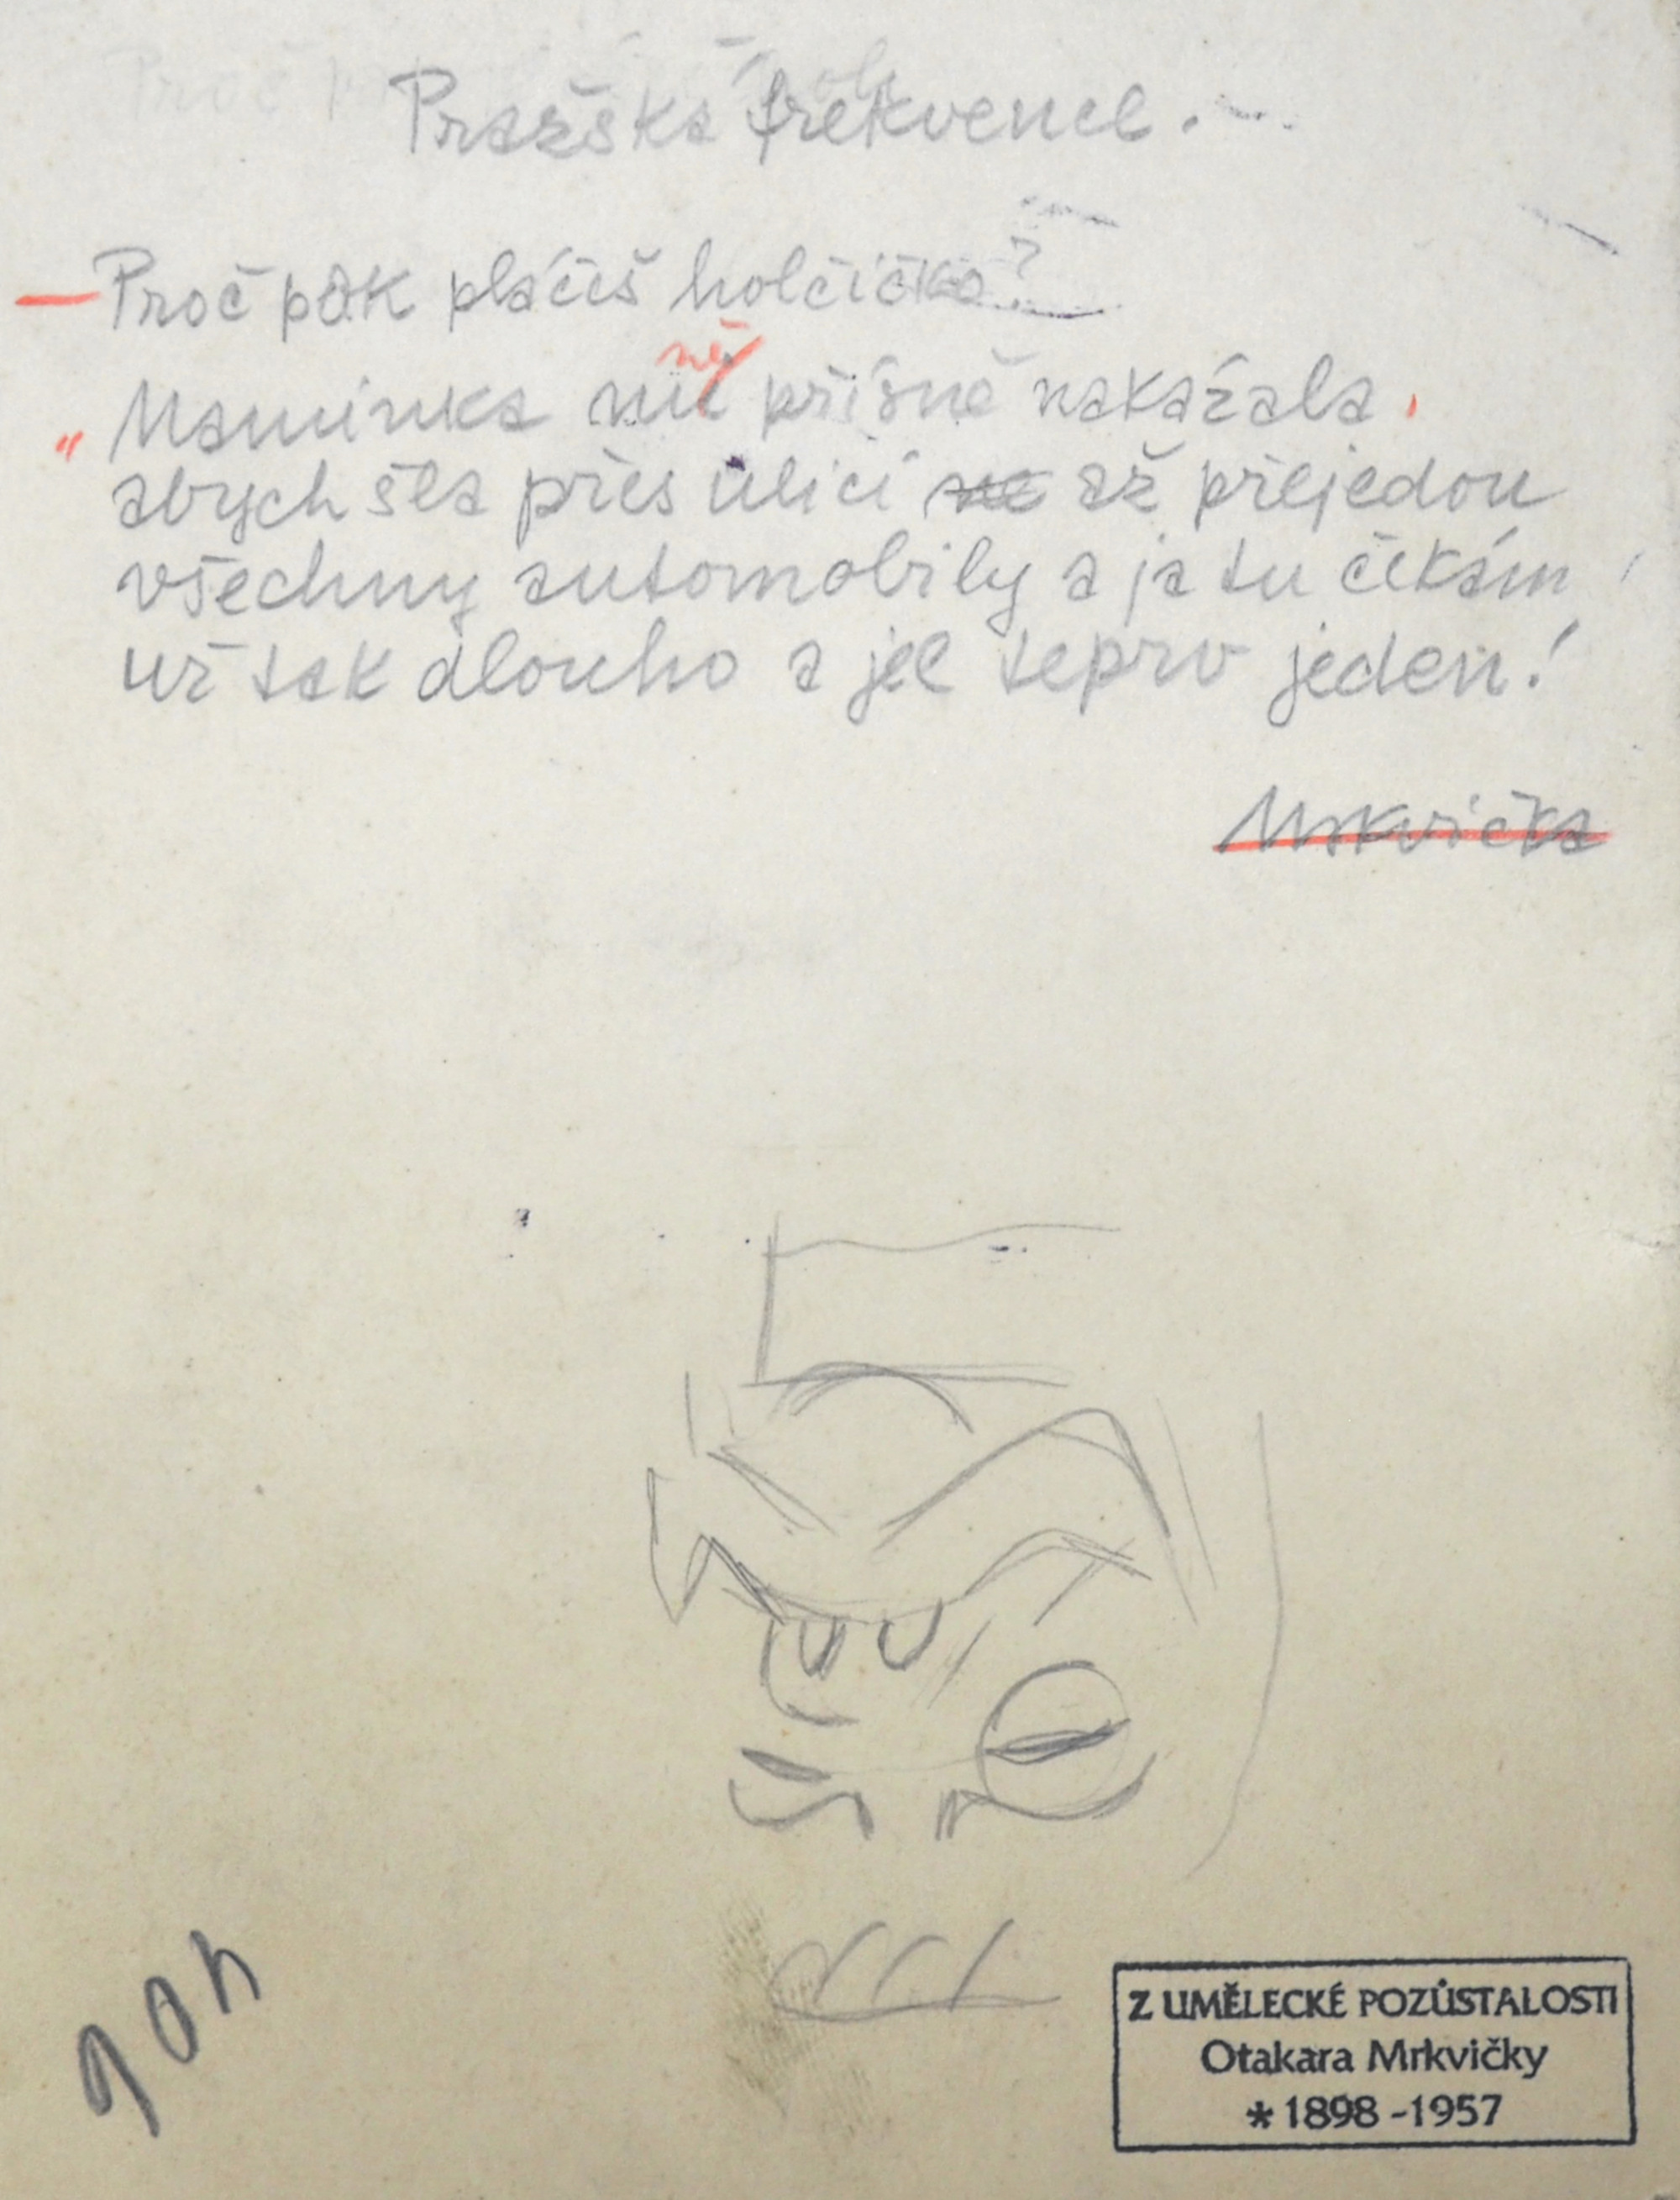 Pražská frekvence.
— Proč pak pláčeš holčičko?
mě
„Maminka mi přísně nakázala,
abych šla přes ulici ne až přejedou
všechny automobily a ja tu čekám
už tak dlouho a jel teprv jeden!
Mrkvička
Z UMĚLECKÉ POZŮSTALOSTI
Otakara Mrkvičky
* 1898 - 1957